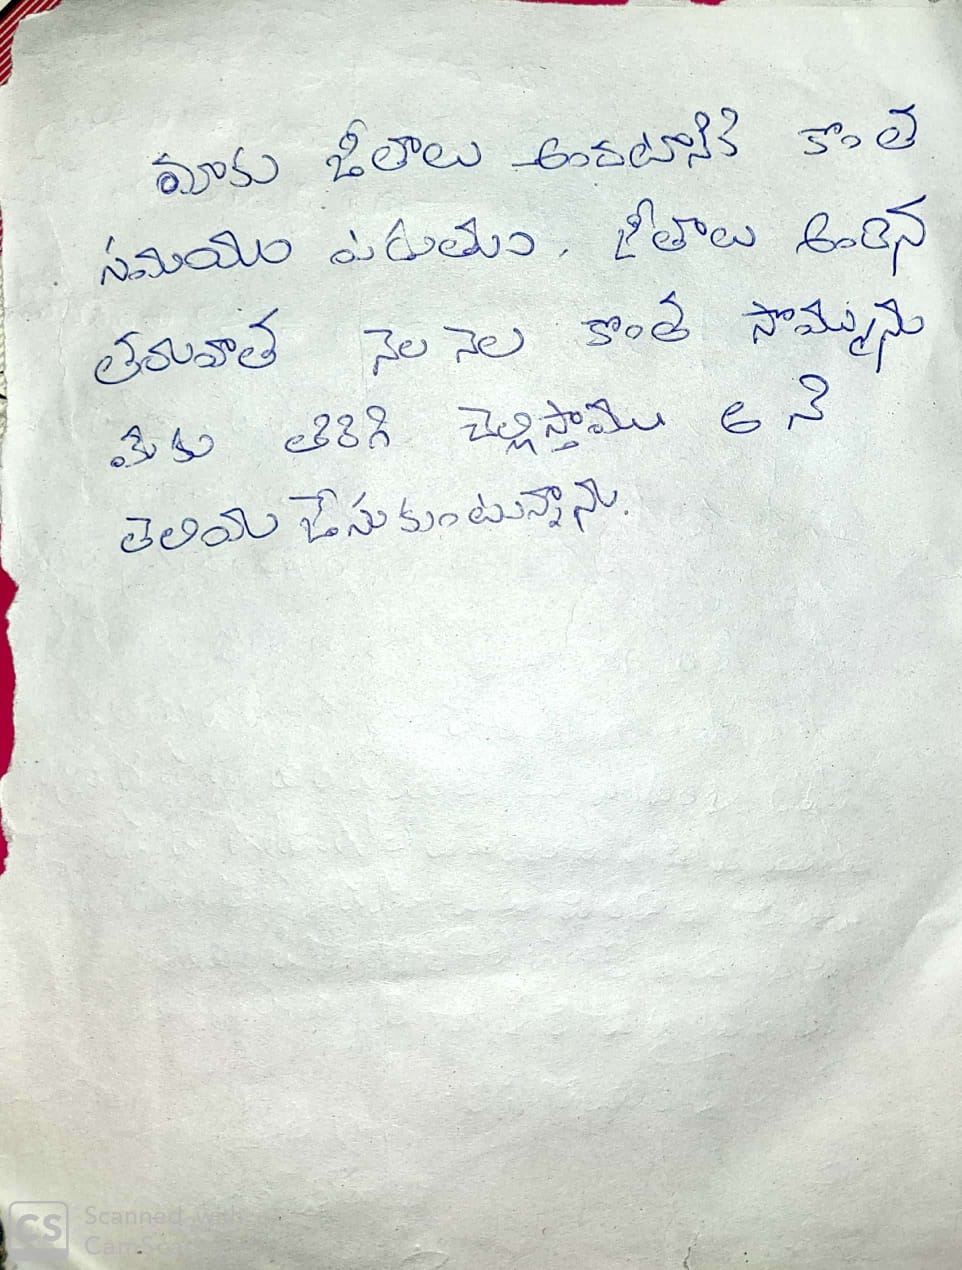 మాకు జీతాలు అందటానికి కొంత
సమయం పడుతుం. జీతాలు అందిన
తరువాత నెల నెల కొంత సొమ్మును
మీకు తిరిగి చెల్లిస్తాము అని
తెలియ జేసుకుంటున్నాను.
CS Scanned with
CamSc